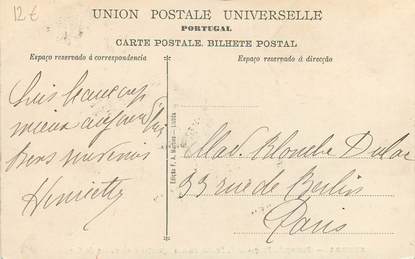 12 €
UNION POSTALE UNIVERSELLE
PORTUGAL
CARTE POSTALE. BILHETE POSTAL
Espaço reservado á correspondencia
Espaço reservado á direcção
Suis beaucoup
mieux aujourd'hui
Bons
Henriette
Edição F. A. Martins — Lisboa
Mad. Blanche Duboc
33 rue de Berlin
Paris